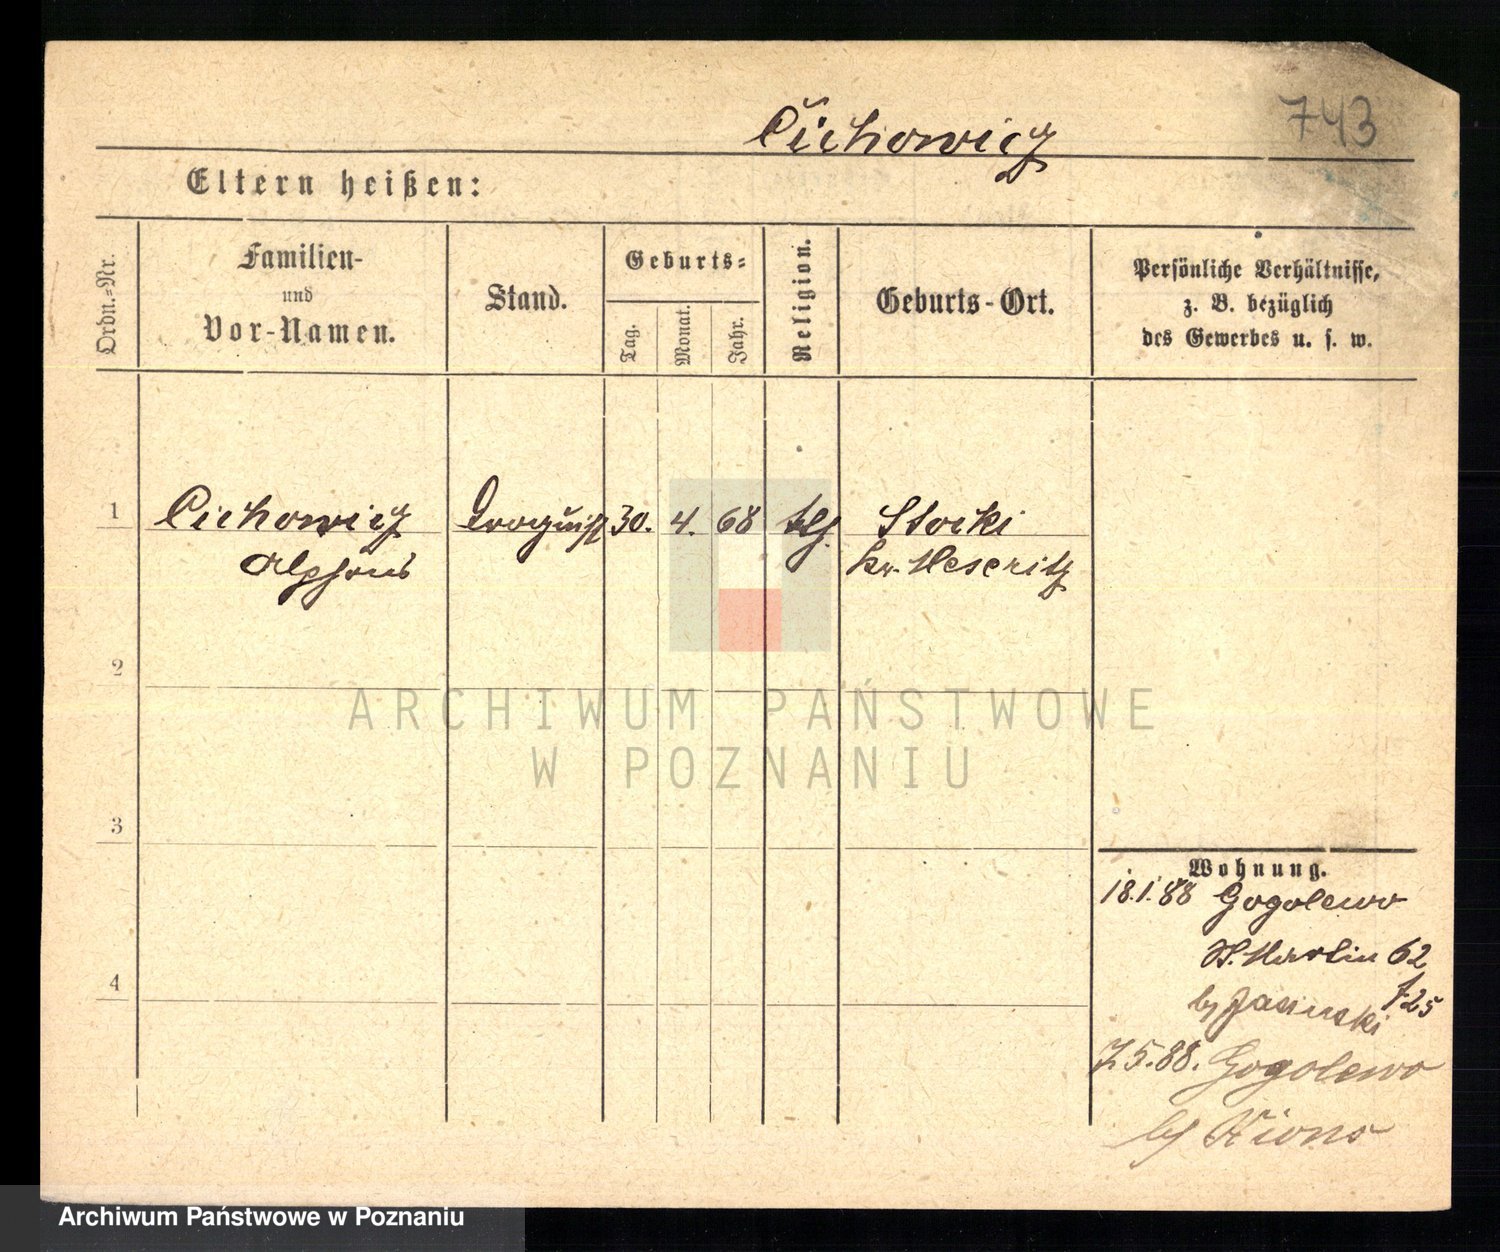 743
Cichowicz
Eltern heißen:
Ordn.-Nr.
Familien-
und
Vor-Namen.
Stand.
Geburts-
Tag.
Monat.
Jahr.
Religion.
Geburts-Ort.
Persönliche Verhältnisse,
z. B. bezüglich
des Gewerbes u. s. w.
1 Cichowicz Droguist 30. 4. 68 klg. Stocki
Alphons Kr. Meseritz
2
3
4
Wohnung.
18.1.88 Gogolewo
St. Martin 62
725
by Jasinski
7.5.88. Gogolewo
by Xions
ARCHIWUM PAŃSTWOWE
W POZNANIU
Archiwum Państwowe w Poznaniu